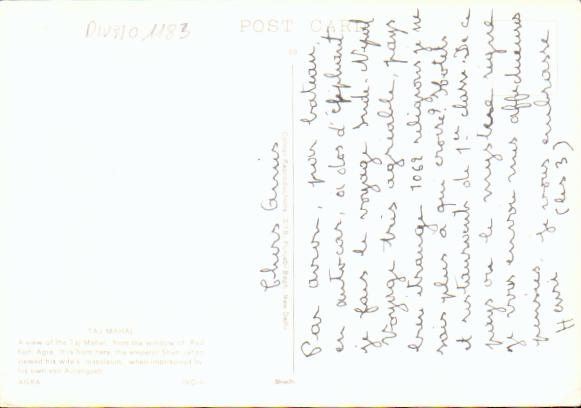 POST CARD
Chers Amis
Par avion, par bateau,
en autocar, à dos d'éléphant
je fais le voyage Inde-Népal
Voyage très agréable, pays
bien étrange 1062 religions je ne
sais plus à qui croire? Hotels
et restaurants de 1ère classe. De ce
pays où le mystère règne
je vous envoie mes affectueuses
pensées. je vous embrasse
(les 3)
TAJ MAHAL
A view of the Taj Mahal, from the window of Red
Fort, Agra. It is from here, the emperor Shah Jahan
viewed his wife's mausoleum, when imprisoned by
his own son Aurangzeb.
AGRA INDIA
New Delhi